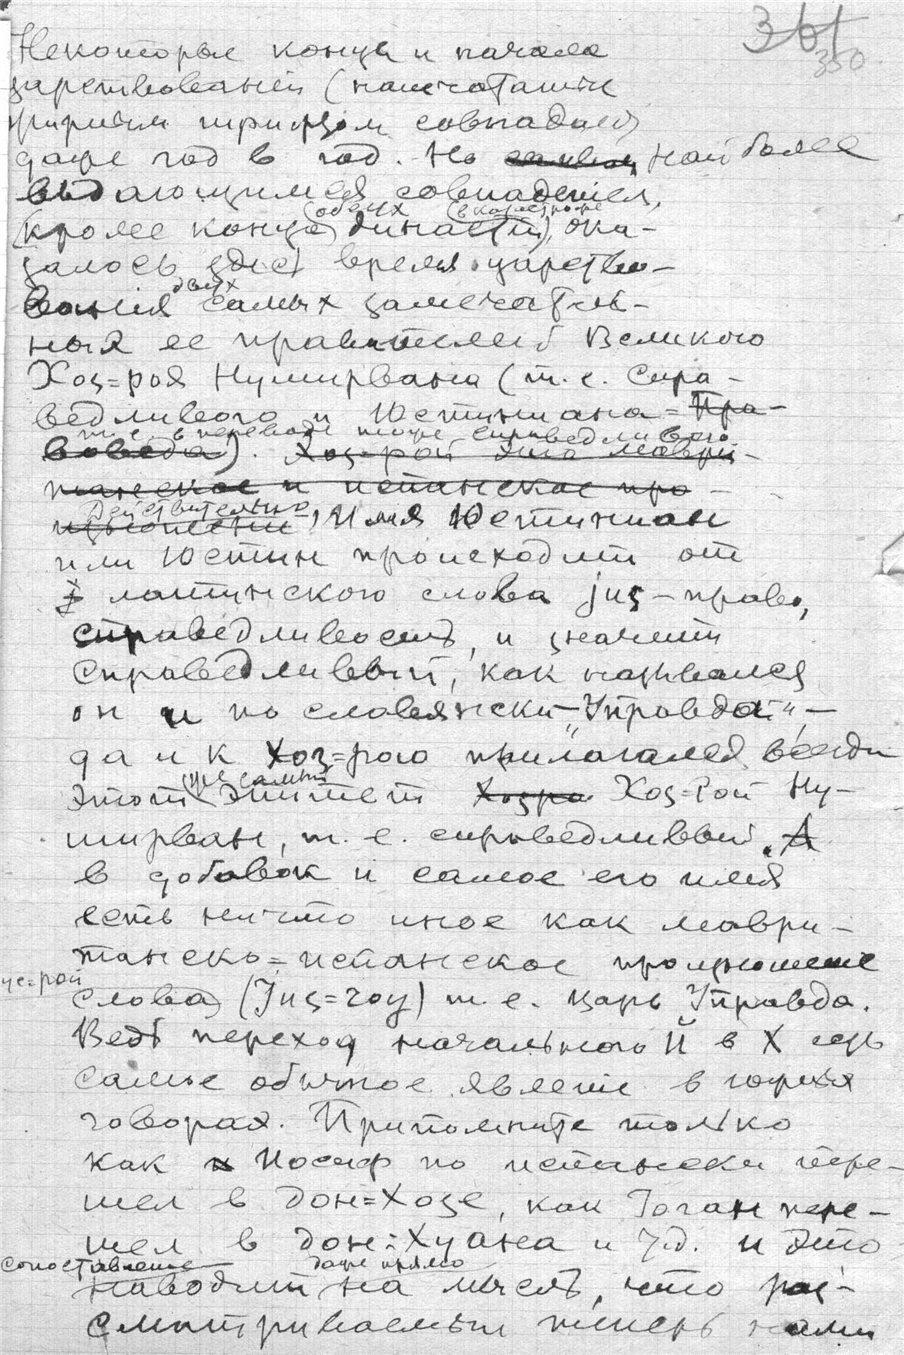 361
350
Некоторые концы и начала
царствований (напечатаны
жирным шрифтом совпадают
даже год в год. Но наиболее
выдающимся совпадением,
(кроме конца обеих династий), ока-
залось здесь время царство-
вания двух самых замечатель-
ных ее правителей Великого
Хоз=роя Нуширвана (т. е. Спра-
ведливого и Юстиниана = Пра-
т. е. в переводе тоже справедливого
воведа). Хоз-рой это маври-
танское и испанское про-
Действительно
изношение, Имя Юстиниан
или Юстин происходит от
латинского слова jus – право,
справедливость, и значит
справедливый, как назывался
он и по славянски – „Управда“, –
да и к Хоз=рою прилагался всегда
этот же самый эпитет Хозро Хоз=Рой Ну-
ширван, т. е. справедливый. А
в добавок и самое его имя
есть ничто иное как маври-
танско=испанское произношение
ус=рой
слова (Jus=roy) т. е. царь Управда.
Ведь переход начального Й в Х есть
самое обычное явление в южных
говорах. Припомните только
как Иосиф по испански пере-
шел в дон=Хозе, как Иоган пере-
шел в дон=Хуана и т.д. и это
сопоставление даже прямо
наводит на мысль, что рас-
сматриваемый теперь нами